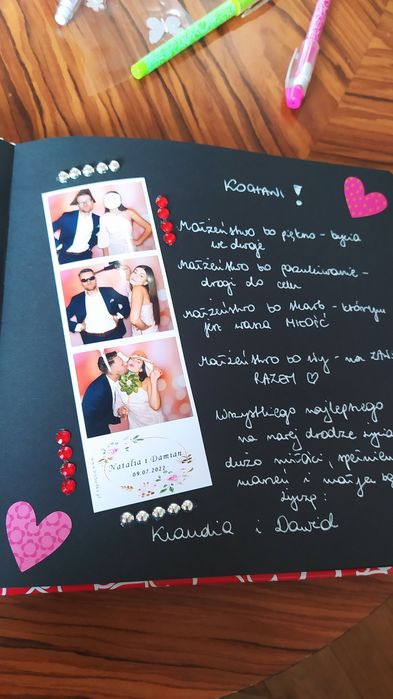 KOCHANI !
Małżeństwo to piękno - bycia
we dwoje
Małżeństwo to poszukiwanie -
drogi do celu
Małżeństwo to skarb - którym
jest wasza MIŁOŚĆ
Małżeństwo to wy - na ZAW
RAZEM ♡
Wszystkiego najlepszego
na nowej drodze życia
dużo miłości, spełnien
marzeń i
życzą :
Klaudia i Dawid
Natalia i Damian
09.07.2022